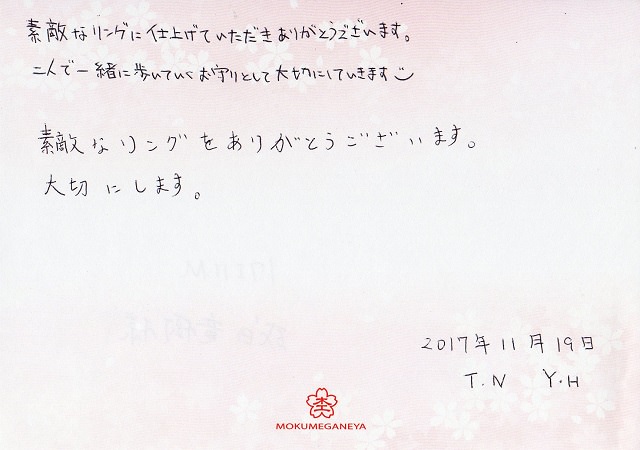 素敵なリングに仕上げていただきありがとうございます。
二人で一緒に歩いていくお守りとして大切にしていきます
素敵なリングをありがとうございます。
大切にします。
2017年11月19日
T.N Y.H
MOKUMEGANEYA